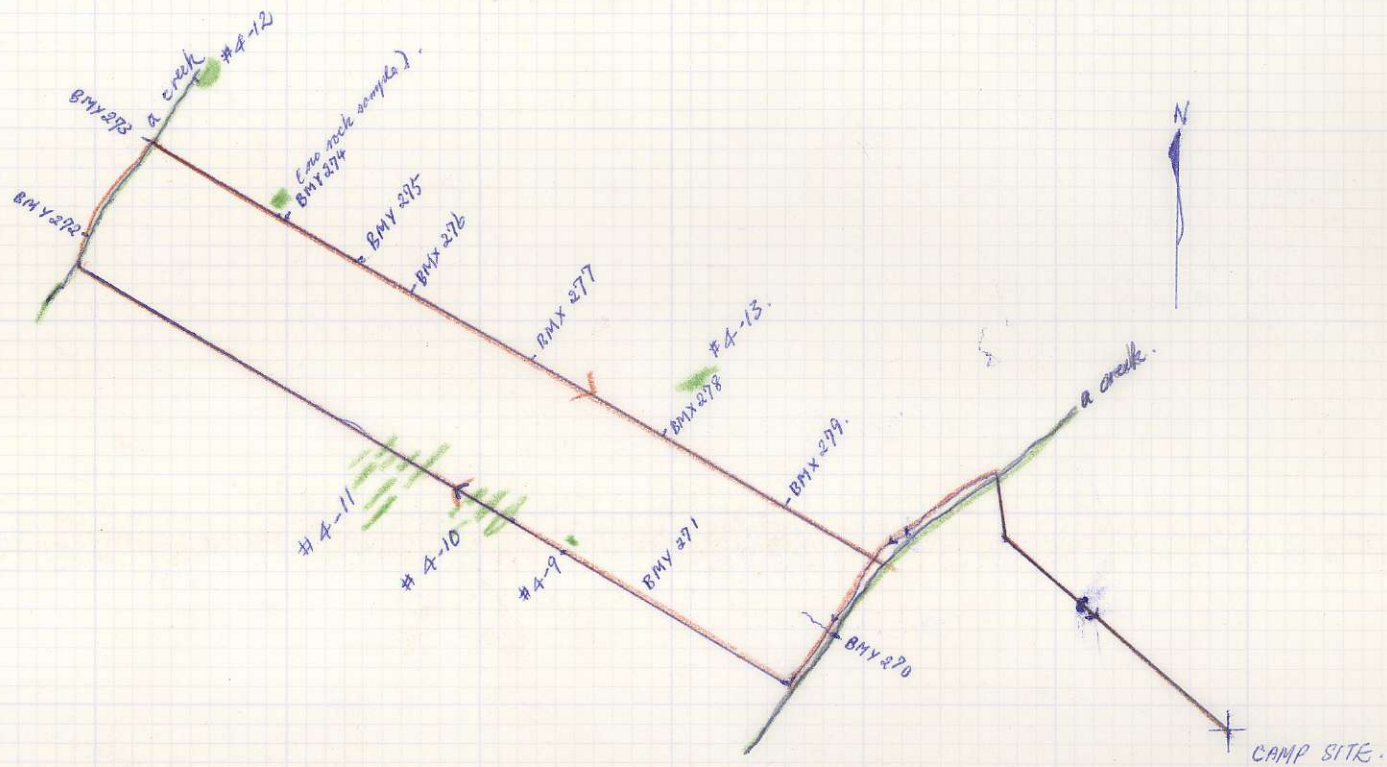 # 4-12
a creek
BMY 273
(no rock sample).
BMY 274
BMY 272
BMY 275
BMX 276
BMX 277
# 4-13.
BMX 278
BMX 279.
N
a creek.
# 4-11
# 4-10
# 4-9
BMY 271
BMY 270
CAMP SITE.